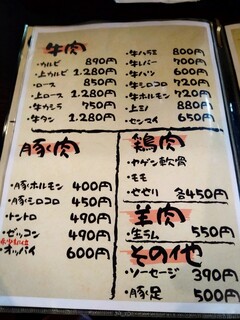 牛肉
・カルビ 890円
・上カルビ 1.280円
・ロース 850円
・上ロース 1.280円
・牛カシラ 750円
・牛タン 1.280円
・牛ハラミ 800円
・牛レバー 700円
・牛ハツ 600円
・牛シロコロ 720円
・牛ホルモン 720円
・上ミノ 880円
・センマイ 650円
豚肉
・豚ホルモン 400円
・豚シロコロ 450円
・トントロ 490円
・ゼッコン 490円
・オッパイ 600円
鶏肉
・ヤゲン軟骨
・モモ
・せせり 各450円
羊肉
・生ラム 550円
その他
・ソーセージ 390円
・豚足 500円